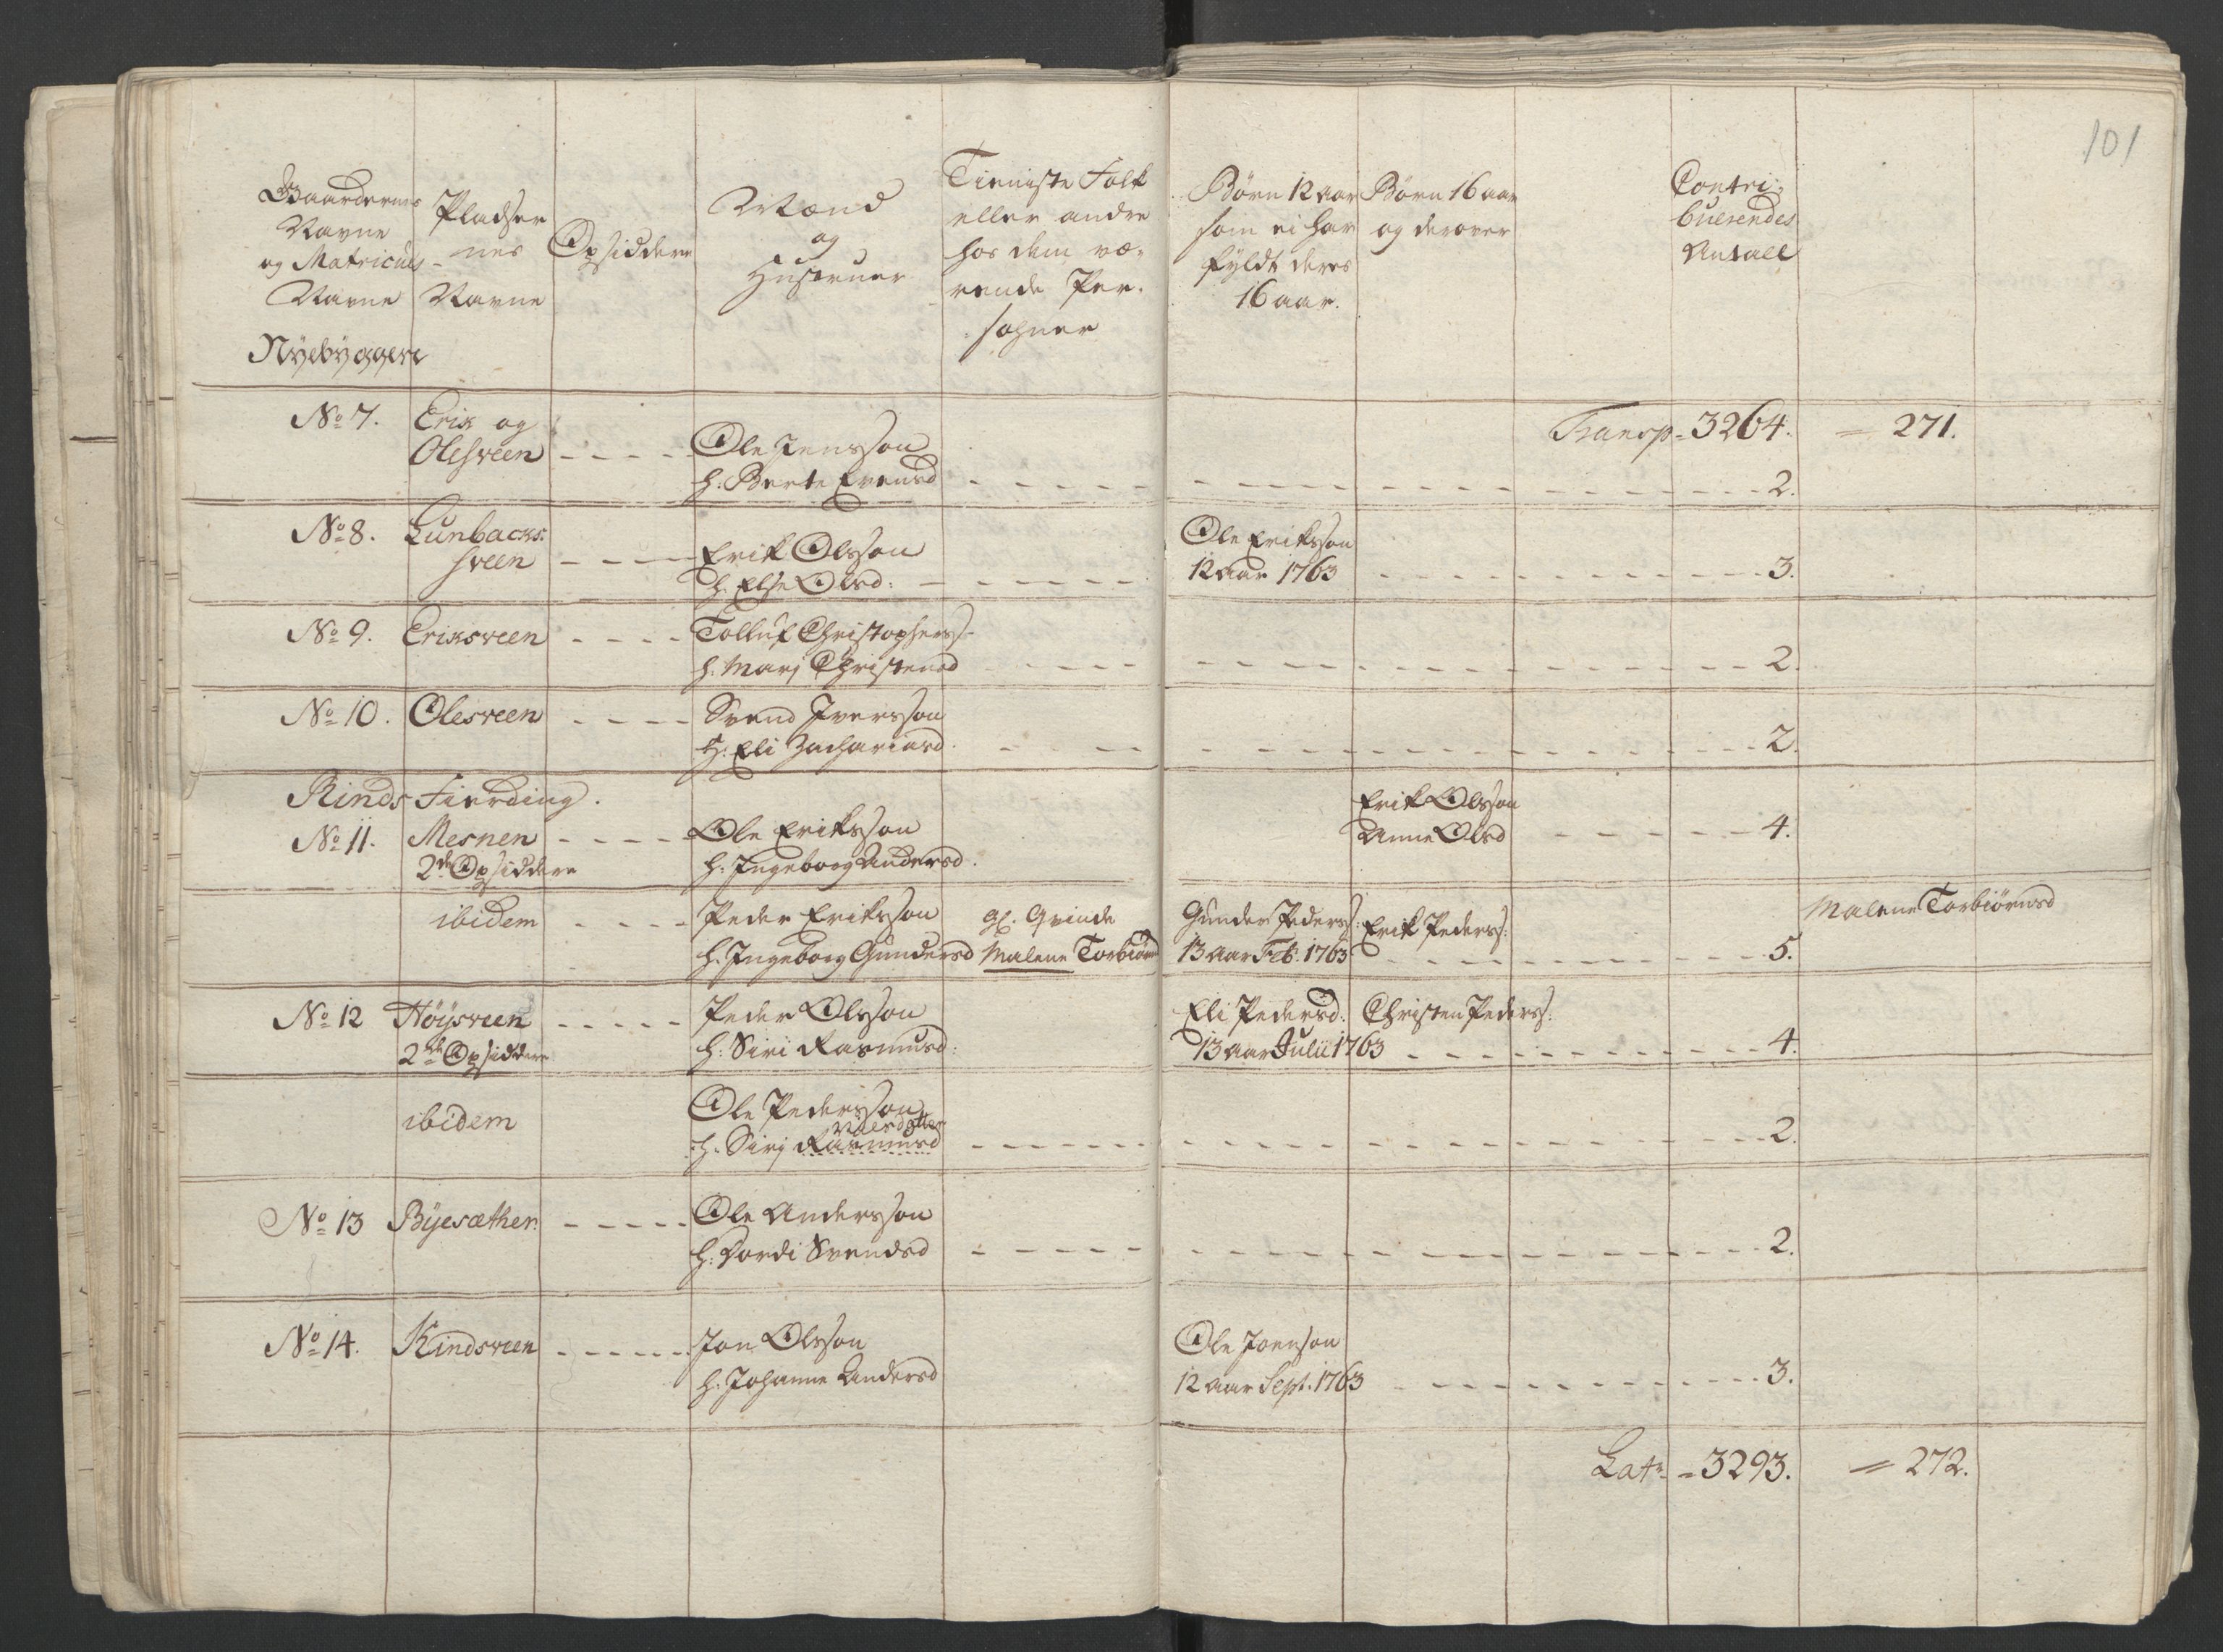 101
Gaardernes
Navne
og Matriculs
Navne
Nÿebÿggere
Pladser
nes
Navne
Opsiddere
Mænd
og
Hustruer
Tieniste Folk
eller andre
hos dem væ-
rende Per-
sohner
Børn 12 aar
som ei har
fyldt deres
16 aar.
Børn 16 aar
og derover
Contri-
buerendes
Antall
No 7. Erik og
Transp = 3264. = 271.
Olesveen - - - - Ole Jensson
h. Berte Evensd - - - - 2.
No 8. Lunbacks
sveen - - - Erik Olsson
h. Else Olsd: - - - -
Ole Eriksson
12 aar 1763 - - - - 3.
No 9. Eriksveen - - - - Tolluf Christophers
h. Marj Christensd - - - - 2.
No 10. Olesveen - - - - Svend Iversson
h. Eli Zachariasd. - - - - 2.
Rinds Fierding.
No 11. Mesnen - - - - Ole Eriksson
2de Opsiddere
h. Ingeborg Andersd.
Erik Olsson
Anne Olsd - - - - 4.
ibidem - - - - Peder Eriksson
h. Ingeborg Gundersd
gl. Qvinde
Malene Torbiørnsd
Gunder Peders:
13 aar Feb. 1763
Erik Peders: - - - - 5.
Malene Torbiørnsd
No 12 Höÿsveen - - - - Peder Olsson
2de Opsiddere
h: Siri Rasmusd:
Eli Pedersd:
13 aar Julii 1763
Christen Peders: - - - - 4.
ibidem
Ole Pedersson
h. Sirj Rasmusd - - - - 2.
No 13 Bÿesæther. - - - - Ole Andersson
h: Dordi Svendsd - - - - 2.
No 14. Kindsveen - - - - Jon Olsson
h. Johanne Andersd
Ole Joenson
12 aar Sept. 1763 - - - - 3.
Latr = 3293. = 272.